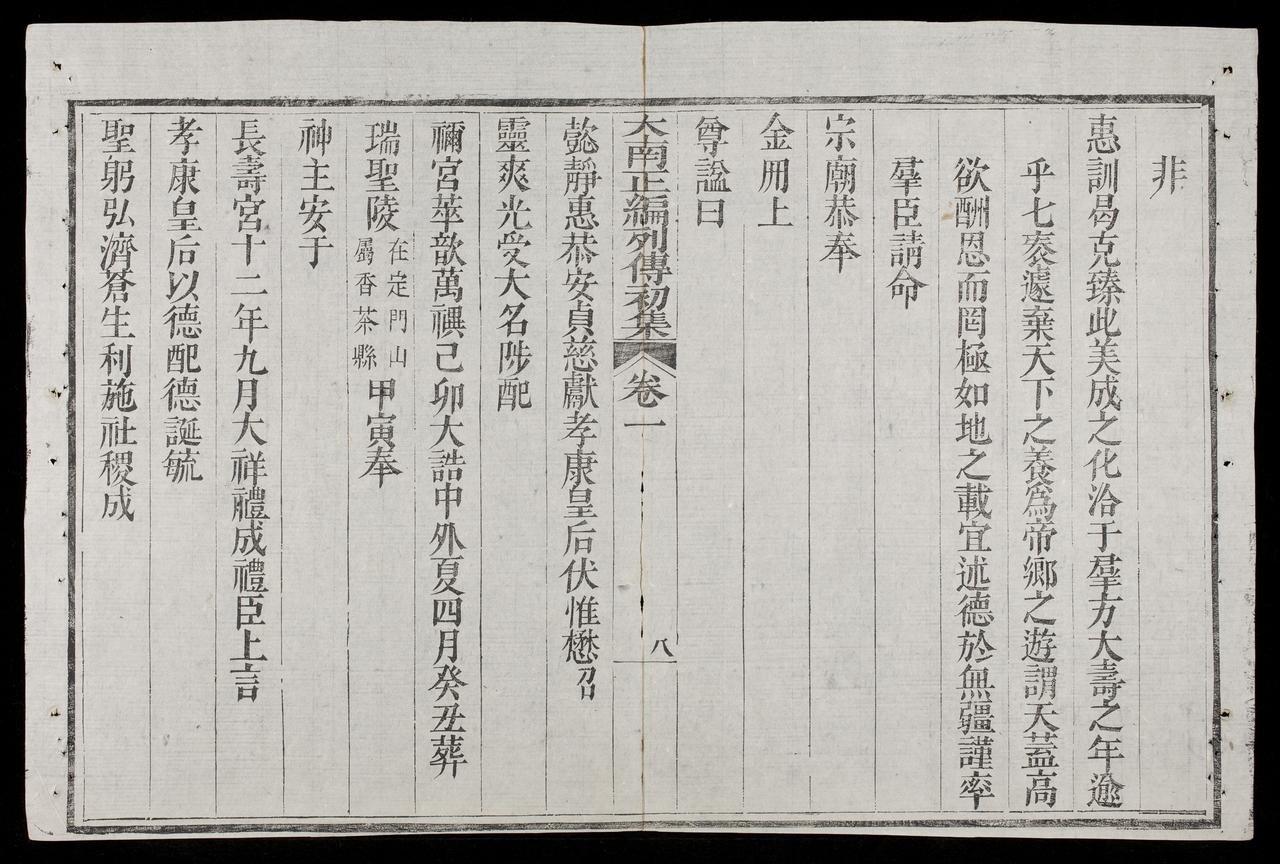 非
惠訓曷克臻此美成之化洽于羣方大壽之年逾
乎七袠遽棄天下之養爲帝鄉之遊謂天蓋高
欲酬恩而罔極如地之載宜述德於無疆謹率
羣臣請命
宗廟恭奉
金冊上
尊諡曰
大南正編列傳初集 卷一 八
懿靜惠恭安貞慈獻孝康皇后伏惟懋召
靈爽光受大名陟配
禰宮莘歆萬禩己卯大誥中外夏四月癸丑葬
瑞聖陵在定門山屬香茶縣甲寅奉
神主安于
長壽宮十二年九月大祥禮成禮臣上言
孝康皇后以德配德誕毓
聖躬弘濟蒼生利施社稷成